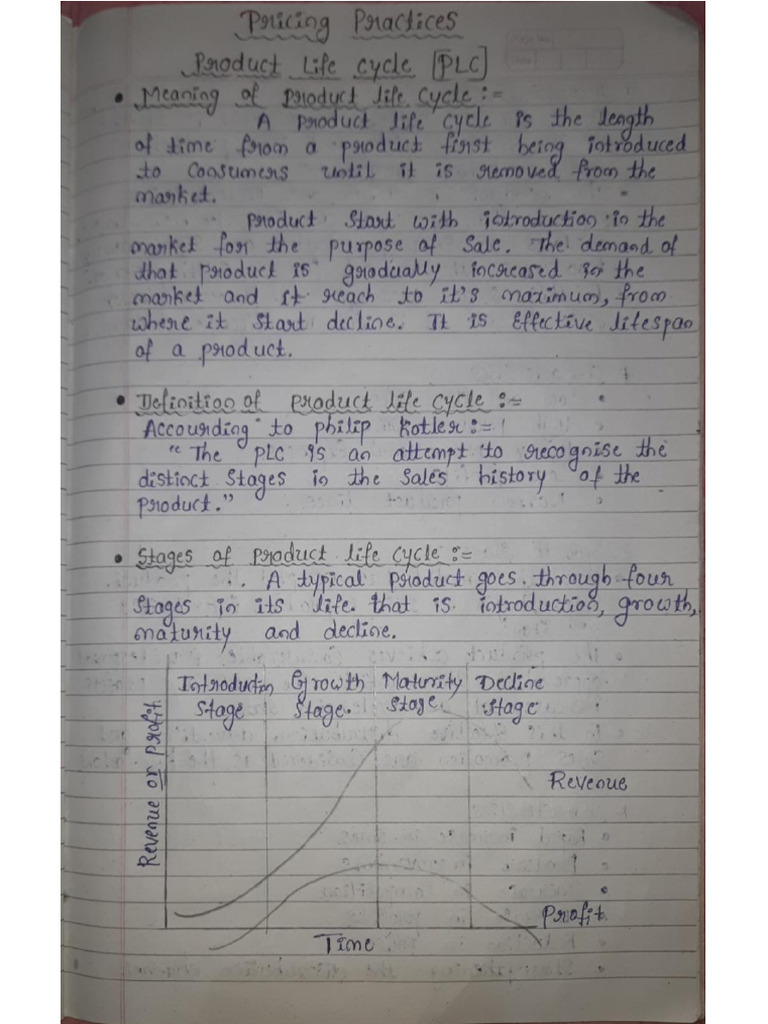 Pricing Practices
Product Life Cycle [PLC]
• Meaning of Product life Cycle :=
A product life cycle is the length
of time from a product first being introduced
to Consumers until it is removed from the
market.
Product Start with introduction in the
market for the purpose of Sale. The demand of
that product is gradually increased in the
market and it reach to it's maximum, from
where it Start decline. It is Effective lifespan
of a product.
• Definition of Product life Cycle :=
Accourding to philip Kotler :=
"The PLC is an attempt to recognise the
distinct Stages in the Sales history of the
Product."
• Stages of Product life Cycle :=
A typical Product goes through four
Stages in its life. that is introduction, growth,
maturity and decline.
Introduction Growth Maturity Decline
Stage Stage. Stage. Stage
Revenue or Profit
Revenue
Profit
Time